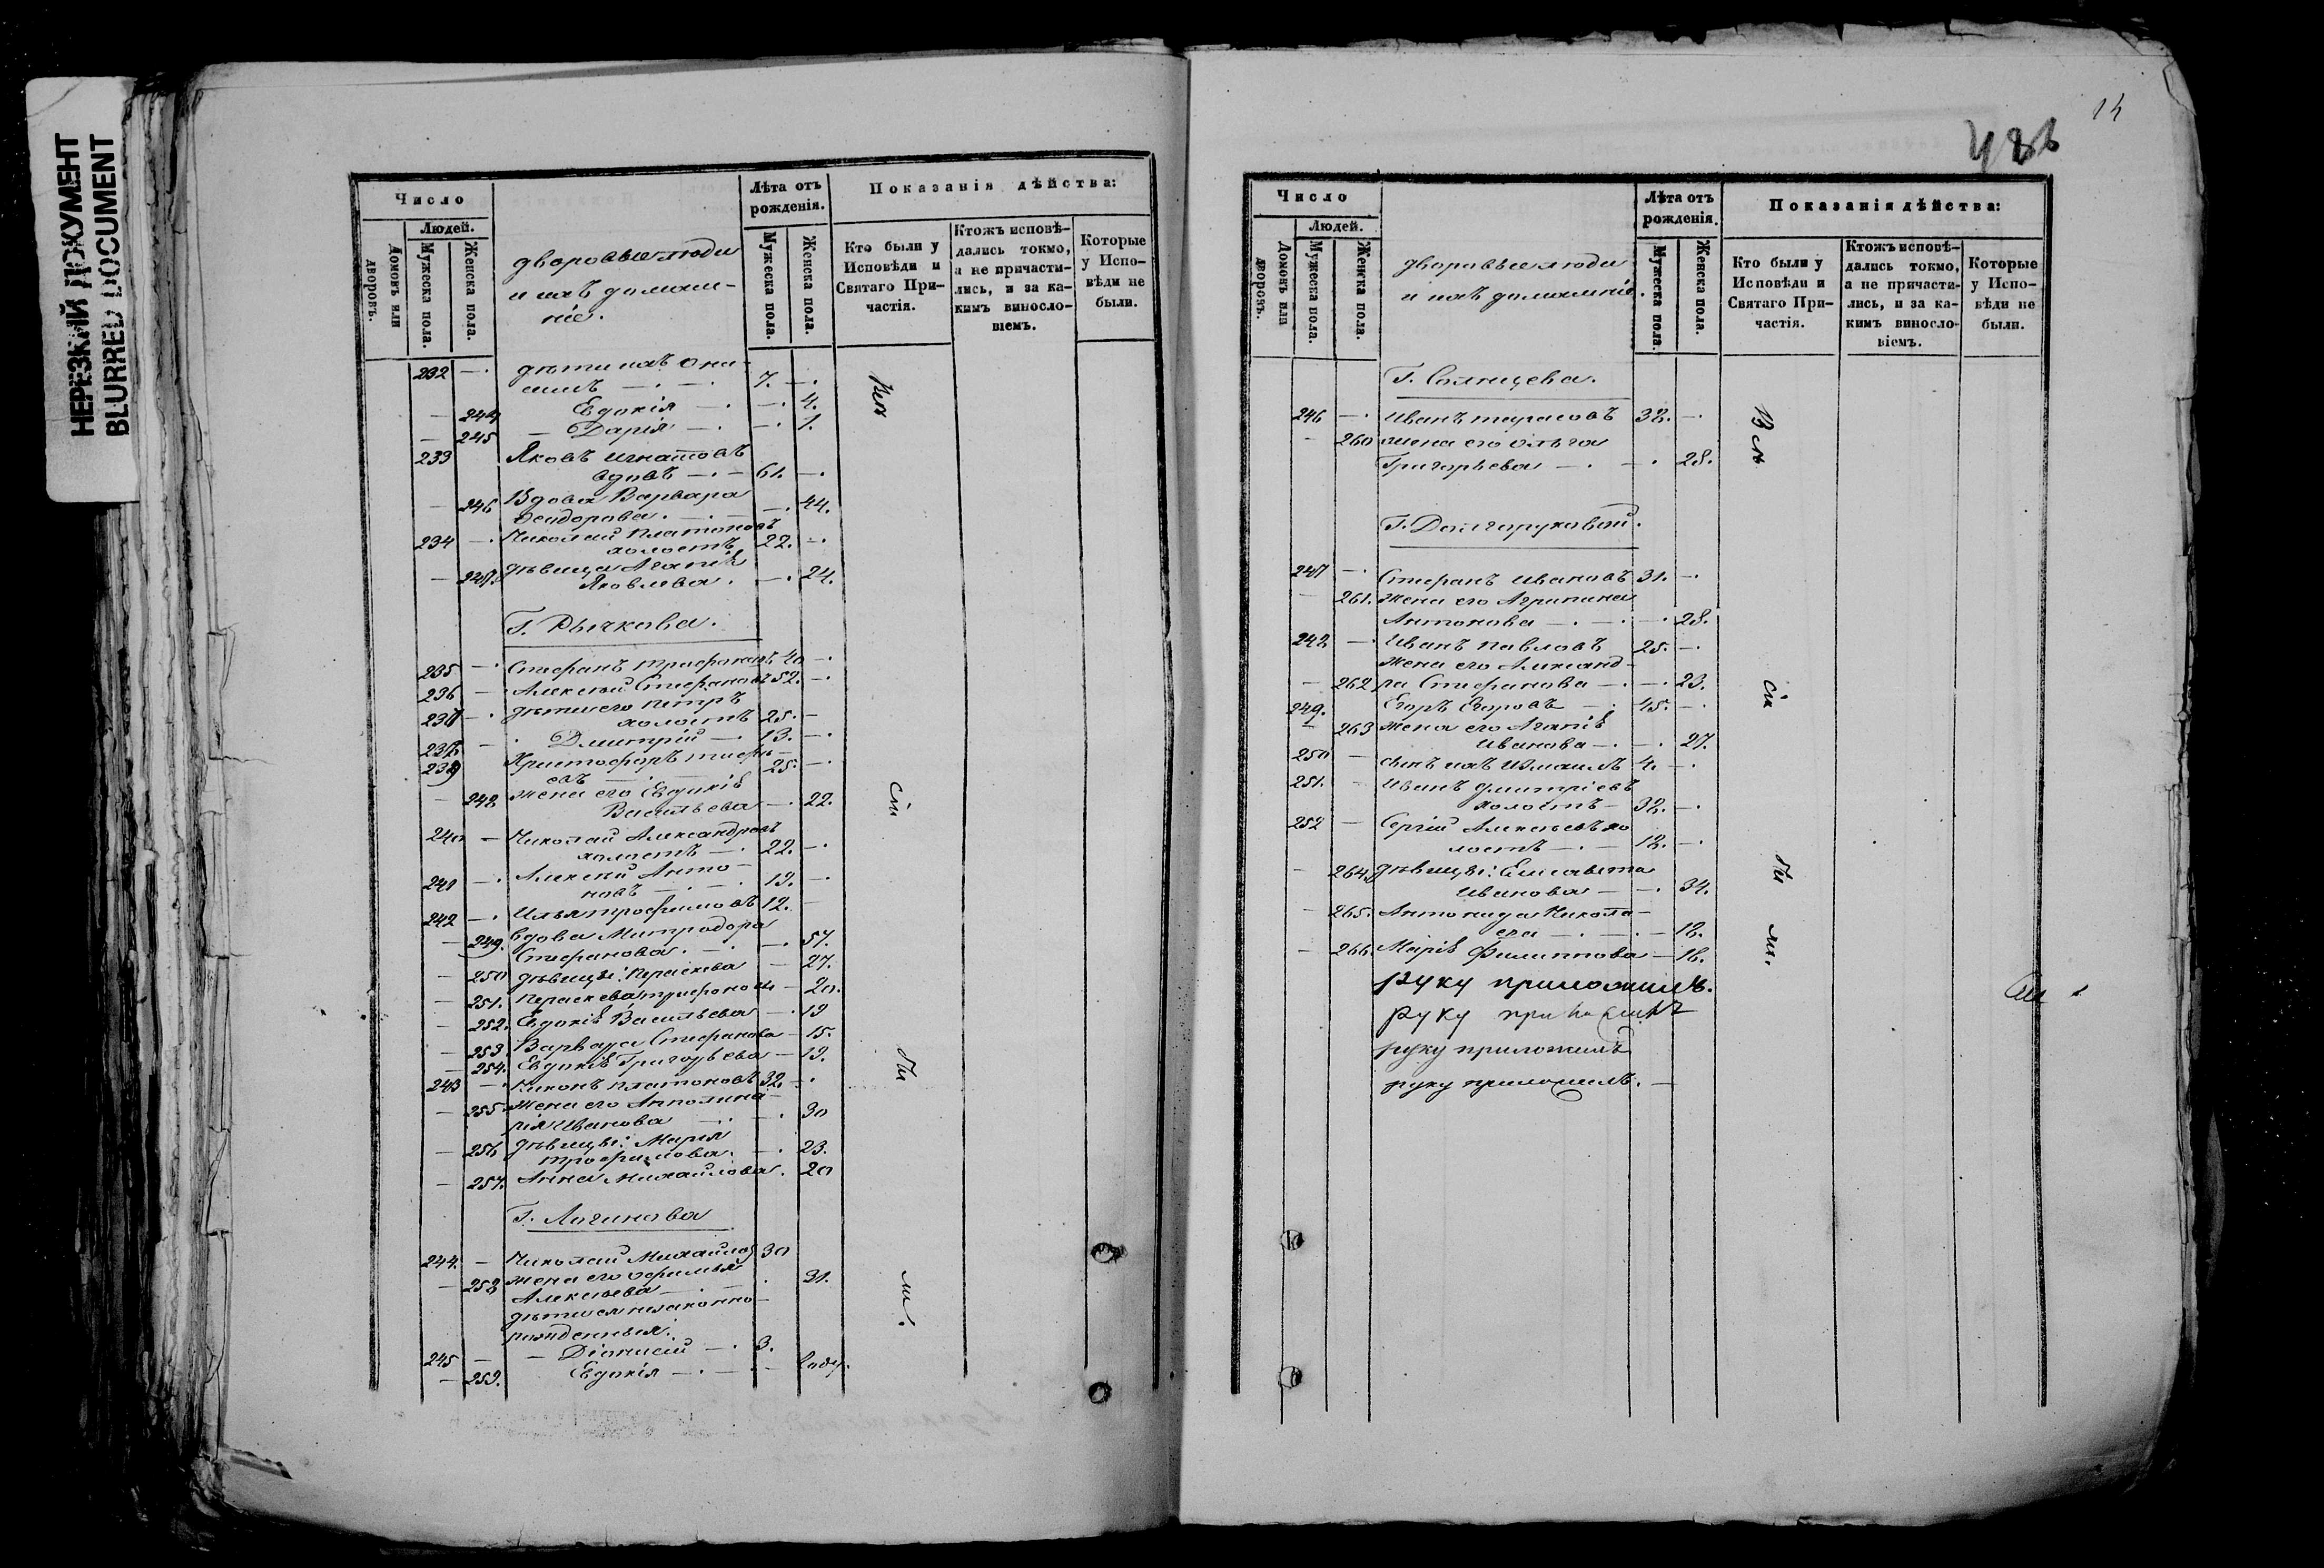 НЕРЕЗКИЙ ДОКУМЕНТ
BLURRED DOCUMENT
Число
Людей.
Домовъ или дворовъ.
Мужеска пола.
Женска пола.
дворовые люди
и ихъ домаш-
ніе.
Лѣта отъ
рожденія.
Мужеска пола.
Женска пола.
Показанія дѣйства:
Кто были у
Исповѣди и
Святаго При-
частія.
Ктожъ исповѣ-
дались токмо,
а не причасти-
лись, и за ка-
кимъ винosло-
віемъ.
Которые
у Испо-
вѣди не
были.
232 — дѣти ихъ Они-
симъ — 7. —
— 244 Едокія — — 4.
— 245 — Дарія — — 1.
233 Яковъ Игнатовъ
вдовъ — 61. —
— 246 Вдова Варвара
Феидорова. — — 44.
234 — Николай Платоновъ
холостъ 22. —
— 247. дѣвица Агапія
Яковлева. — 24.
Г. Рычкова.
235 — Стефанъ Трифоновъ 40 —
236 — Алексѣй Стефановъ 52. —
237 — дѣти его Петръ
холостъ 25. —
238 — Дмитрій — 13. —
239 Христофоръ
25. —
— 248 жена его Едокія
Васильева — 22.
240 — Николай Александровъ
холостъ — 22. —
241 — Алексѣй Анто-
новъ — 13. —
242 — Илья Трофимовъ 12. —
— 249. вдова Митродора
Стефанова. — — 57.
— 250 дѣвицы: Параскева — 27.
— 251. Параскева Трифонова — 20.
— 252. Едокія Васильева — 19
— 253. Варвара Стефанова — 15.
— 254. Едокія Григорьева — 13.
243 — Никонъ Платоновъ 32. —
— 255 жена его Апполина-
рія Иванова — — 30
— 256 дѣвицы: Марія
Трофимова. — 23.
— 257. Анна Михайлова. 20
Г. Логинова
244. — Николай Михайловъ 30
— 258 жена его Офимья
Алексѣева — 31.
дѣти ея незаконно-
рожденныя:
245 — — Діонисій — 3.
— 259. Едокія — — году.
Вси
сіи
бы
ли.
14
486
Число
Людей.
Домовъ или дворовъ.
Мужеска пола.
Женска пола.
дворовые люди
и ихъ домашніе.
Лѣта отъ
рожденія.
Мужеска пола.
Женска пола.
Показанія дѣйства:
Кто были у
Исповѣди и
Святаго При-
частія.
Ктожъ исповѣ-
дались токмо,
а не причасти-
лись, и за ка-
кимъ винosло-
віемъ.
Которые
у Испо-
вѣди не
были.
Г. Солнцева.
246 — Иванъ Тарасовъ 32. —
— 260 жена его Ольга
Григорьева — — 28.
Г. Долгоруковой.
247 — Стефанъ Ивановъ 31. —
— 261. жена его Агрипина
Антонова — — 28.
248 — Иванъ Павловъ 25. —
жена его Александ-
— 262 ра Стефанова — — 23.
249. Егоръ Егоровъ — 45. —
— 263 жена его Агапія
Иванова — — 27.
250 — сынъ ихъ Измаилъ 4. —
251. Иванъ Дмитріевъ
холостъ — 32. —
252 — Сергій Алексѣевъ хо
лостъ — 18. —
— 264. дѣвицы: Елисавета
Иванова — — 34.
— 265. Антонида Никола-
ева — — 18.
— 266. Марія Филиппова — 16.
руку приложилъ.
руку приложилъ
руку приложилъ
руку приложилъ. —
Вси
сіи
бы
ли.